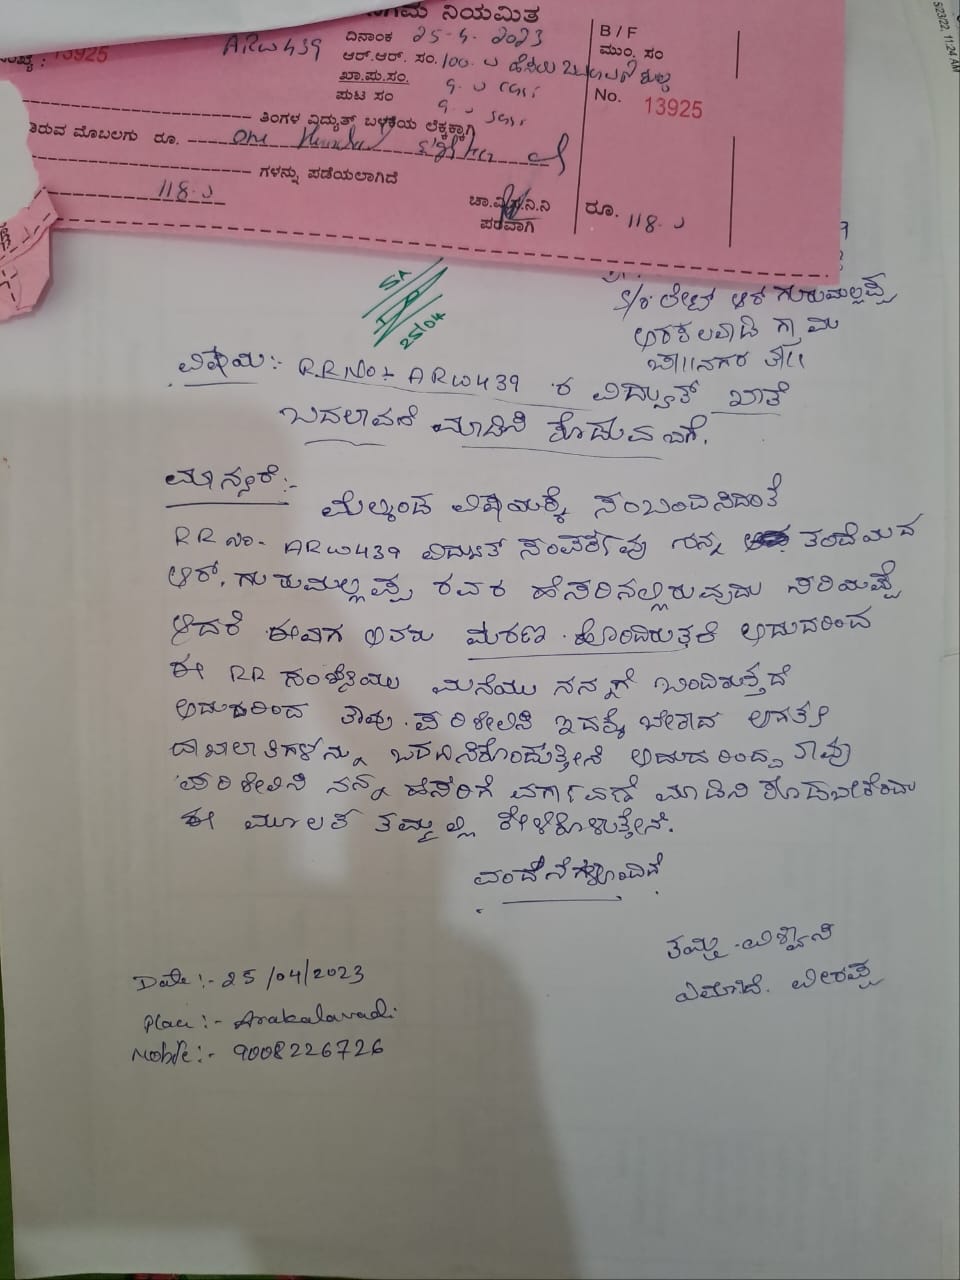 ನಿಗಮ ನಿಯಮಿತ
13925
ARW439
ದಿನಾಂಕ 25-4-2023
ಆರ್.ಆರ್. ಸಂ. 100. ಹೆಸರು ಬದಲಾವಣೆ ಶುಲ್ಕ
ಖಾ.ಪು.ಸಂ. 9. CGST
ಪುಟ ಸಂ 9. SGST
ತಿಂಗಳ ವಿದ್ಯುತ್ ಬಳಕೆಯ ಲೆಕ್ಕಕ್ಕಾಗಿ
ಮೊಬಲಗು ರೂ. One Hundred Eighteen
ಗಳನ್ನು ಪಡೆಯಲಾಗಿದೆ
118.
ಚಾ.ವಿ.ಸ.ನಿ.ನಿ
ಪರವಾಗಿ
B / F
ಮುಂ. ಸಂ
No. 13925
ರೂ. 118.
5/23/22, 11:24 AM
25/04
S/o ಲೇಟ್ ಆರ್ ಗುರುಮಲ್ಲಪ್ಪ
ಅರಕಲವಾಡಿ ಗ್ರಾಮ
ಚಾ||ನಗರ ತಾ||
ವಿಷಯ:- RR No:- ARW439 ರ ವಿದ್ಯುತ್ ಖಾತೆ
ಬದಲಾವಣೆ ಮಾಡಿಸಿ ಕೊಡುವ ಬಗೆ.
ಮಾನ್ಯರೆ:-
ಮೇಲ್ಕಂಡ ವಿಷಯಕ್ಕೆ ಸಂಬಂಧಿಸಿದಂತೆ
RR No- ARW439 ವಿದ್ಯುತ್ ಸಂಪರ್ಕವು ನನ್ನ ತಂದೆಯವರಾದ
ಆರ್. ಗುರುಮಲ್ಲಪ್ಪ ರವರ ಹೆಸರಿನಲ್ಲಿರುವುದು ಸರಿಯಷ್ಟೆ
ಆದರೆ ಈವಾಗ ಅವರು ಮರಣ ಹೊಂದಿರುತ್ತಾರೆ ಆದುದರಿಂದ
ಈ RR ಸಂಖ್ಯೆಯು ಮನೆಯು ನನ್ನಗೆ ಬಂದಿರುತ್ತದೆ
ಆದುದರಿಂದ ತಾವು ಪರಿಶೀಲಿಸಿ ಇದಕ್ಕೆ ಬೇಕಾದ ಅಗತ್ಯ
ದಾಖಲಾತಿಗಳನ್ನು ಒದಗಿಸಿಕೊಡುತ್ತೇನೆ ಆದುದರಿಂದ ತಾವು
ಪರಿಶೀಲಿಸಿ ನನ್ನ ಹೆಸರಿಗೆ ವರ್ಗಾವಣೆ ಮಾಡಿಸಿ ಕೊಡಬೇಕೆಂದು
ಈ ಮೂಲಕ ತಮ್ಮಲ್ಲಿ ಕೇಳಿಕೊಳ್ಳುತ್ತೇನೆ.
ವಂದನೆಗಳೊಂದಿಗೆ
ತಮ್ಮ ವಿಶ್ವಾಸಿ
ವೀರಪ್ಪ
Date:- 25/04/2023
Place:- Arakalavadi
Mobile:- 9008226726